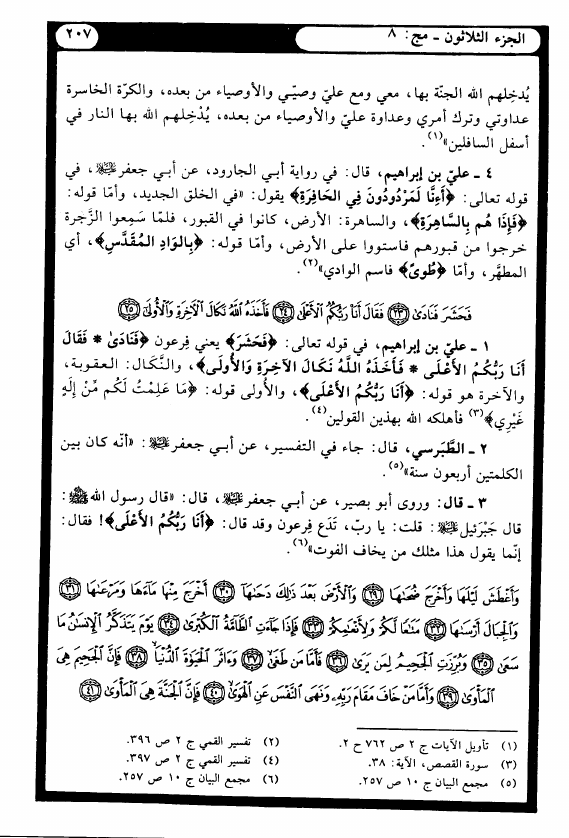 الجزء الثلاثون ـ مج: ٨
٢٠٧
يُدخِلهم الله الجنّة بها، معي ومع عليّ وصيّي والأوصياء من بعده، والكرّة الخاسرة
عداوتي وترك أمري وعداوة عليّ والأوصياء من بعده، يُدْخِلهم الله بها النار في
أسفل السافلين»(١).
٤ ـ عليّ بن إبراهيم، قال: في رواية أبي الجارود، عن أبي جعفر عليه السلام، في
قوله تعالى: ﴿أَءِنَّا لَمَرْدُودُونَ فِي الحَافِرَةِ﴾ يقول: «في الخلق الجديد، وأمّا قوله:
﴿فَإِذَا هُم بِالسَّاهِرَةِ﴾، والساهرة: الأرض، كانوا في القبور، فلمّا سَمِعوا الزَّجرة
خرجوا من قبورهم فاستووا على الأرض، وأمّا قوله: ﴿بِالوَادِ المُقَدَّسِ﴾، أي
المطهَّر، وأمّا ﴿طُوىً﴾ فاسم الوادي»(٢).
فَحَشَرَ فَنَادَىٰ ٢٣ فَقَالَ أَنَا۠ رَبُّكُمُ ٱلْأَعْلَىٰ ٢٤ فَأَخَذَهُ ٱللَّهُ نَكَالَ ٱلْآخِرَةِ وَٱلْأُولَىٰ ٢٥
١ ـ عليّ بن إبراهيم، في قوله تعالى: ﴿فَحَشَرَ﴾ يعني فِرعون ﴿فَنَادَىٰ * فَقَالَ
أَنَا رَبُّكُمُ الأَعْلَى * فَأَخَذَهُ اللَّهُ نَكَالَ الآخِرَةِ وَالأُولَى﴾، والنَّكَال: العقوبة،
والآخرة هو قوله: ﴿أَنَا رَبُّكُمُ الأَعْلَى﴾، والأولى قوله: ﴿مَا عَلِمْتُ لَكُم مِّنْ إِلَهٍ
غَيْرِي﴾(٣) فأهلكه الله بهذين القولين(٤).
٢ ـ الطَّبَرسي، قال: جاء في التفسير، عن أبي جعفر عليه السلام: «أنّه كان بين
الكلمتين أربعون سنة»(٥).
٣ ـ قال: وروى أبو بصير، عن أبي جعفر عليه السلام، قال: «قال رسول الله ﷺ:
قال جَبْرَئيل عليه السلام: قلت: يا ربّ، تَدَع فِرعون وقد قال: ﴿أَنَا رَبُّكُمُ الأَعْلَى﴾! فقال:
إنّما يقول هذا مثلك من يخاف الفوت»(٦).
وَأَغْطَشَ لَيْلَهَا وَأَخْرَجَ ضُحَىٰهَا ٢٩ وَٱلْأَرْضَ بَعْدَ ذَٰلِكَ دَحَىٰهَآ ٣٠ أَخْرَجَ مِنْهَا مَآءَهَا وَمَرْعَىٰهَا ٣١
وَٱلْجِبَالَ أَرْسَىٰهَا ٣٢ مَتَٰعًا لَّكُمْ وَلِأَنْعَٰمِكُمْ ٣٣ فَإِذَا جَآءَتِ ٱلطَّآمَّةُ ٱلْكُبْرَىٰ ٣٤ يَوْمَ يَتَذَكَّرُ ٱلْإِنسَٰنُ مَا
سَعَىٰ ٣٥ وَبُرِّزَتِ ٱلْجَحِيمُ لِمَن يَرَىٰ ٣٦ فَأَمَّا مَن طَغَىٰ ٣٧ وَءَاثَرَ ٱلْحَيَوٰةَ ٱلدُّنْيَا ٣٨ فَإِنَّ ٱلْجَحِيمَ هِىَ
ٱلْمَأْوَىٰ ٣٩ وَأَمَّا مَنْ خَافَ مَقَامَ رَبِّهِۦ وَنَهَى ٱلنَّفْسَ عَنِ ٱلْهَوَىٰ ٤٠ فَإِنَّ ٱلْجَنَّةَ هِىَ ٱلْمَأْوَىٰ ٤١
(١) تأويل الآيات ج ٢ ص ٧٦٢ ح ٢.
(٢) تفسير القمي ج ٢ ص ٣٩٦.
(٣) سورة القصص، الآية: ٣٨.
(٤) تفسير القمي ج ٢ ص ٣٩٧.
(٥) مجمع البيان ج ١٠ ص ٢٥٧.
(٦) مجمع البيان ج ١٠ ص ٢٥٧.